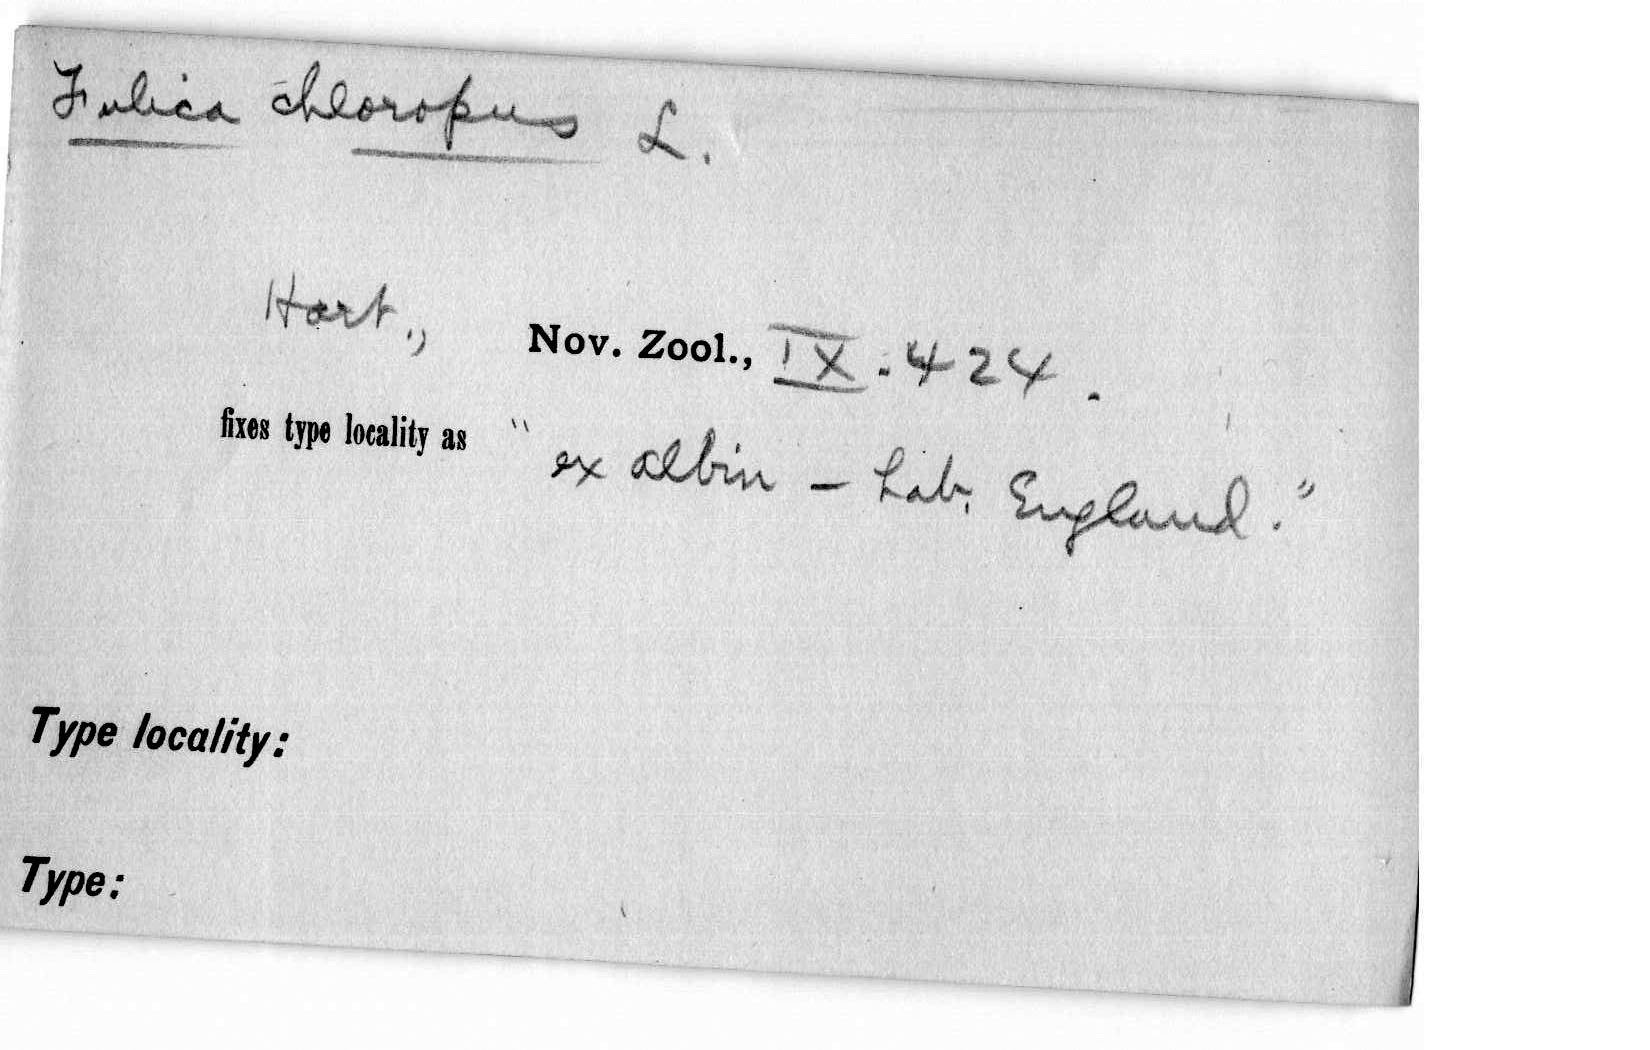 Fulica chloropus L.
Hart., Nov. Zool., IX. 424.
fixes type locality as "ex Albin – Hab. England."
Type locality:
Type: